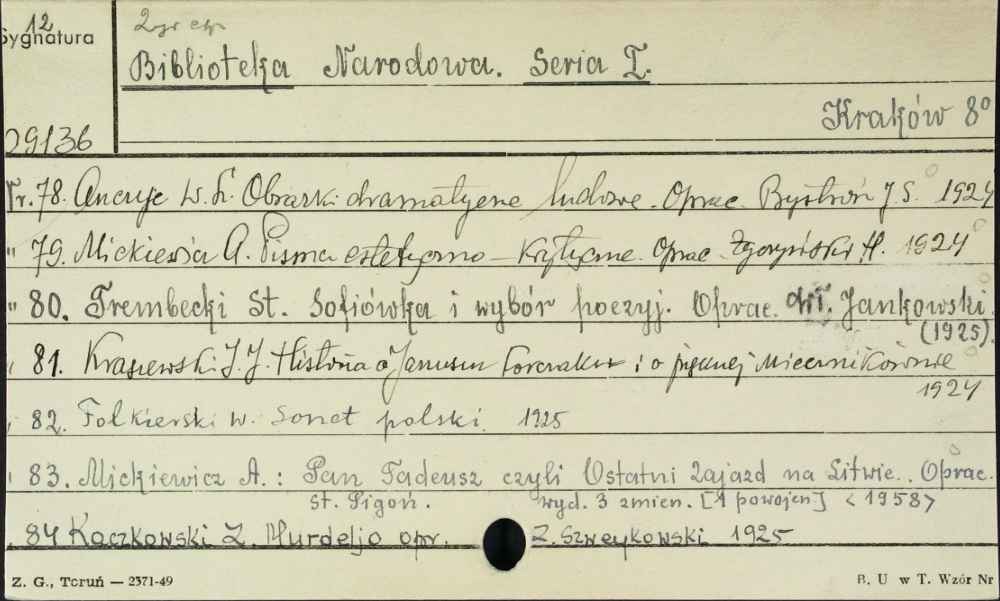 12
Sygnatura
2gi egz.
Biblioteka Narodowa. Seria I.
Kraków 8°
29136
Nr. 78. Anczyc W. L. Obrazki dramatyczne ludowe. Oprac. Bystroń J. S. 1924
" 79. Mickiewicz A. Pisma estetyczno-krytyczne. Oprac. Zgorzelski H. 1924
" 80. Trembecki St. Sofiówka i wybór poezyj. Oprac. Wł. Jankowski.
(1925).
" 81. Kraszewski J. J. Historia o Januszu Korczaku i o pięknej Miecznikównie
1924
" 82. Folkierski W. Sonet polski. 1925
" 83. Mickiewicz A.: Pan Tadeusz czyli Ostatni Zajazd na Litwie. Oprac.
St. Pigoń. wyd. 3 zmien. [1 powojen] <1958>
" 84 Kaczkowski Z. Murdeljo opr. Z. Szweykowski 1925
Z. G., Toruń — 2371-49
B. U w T. Wzór Nr